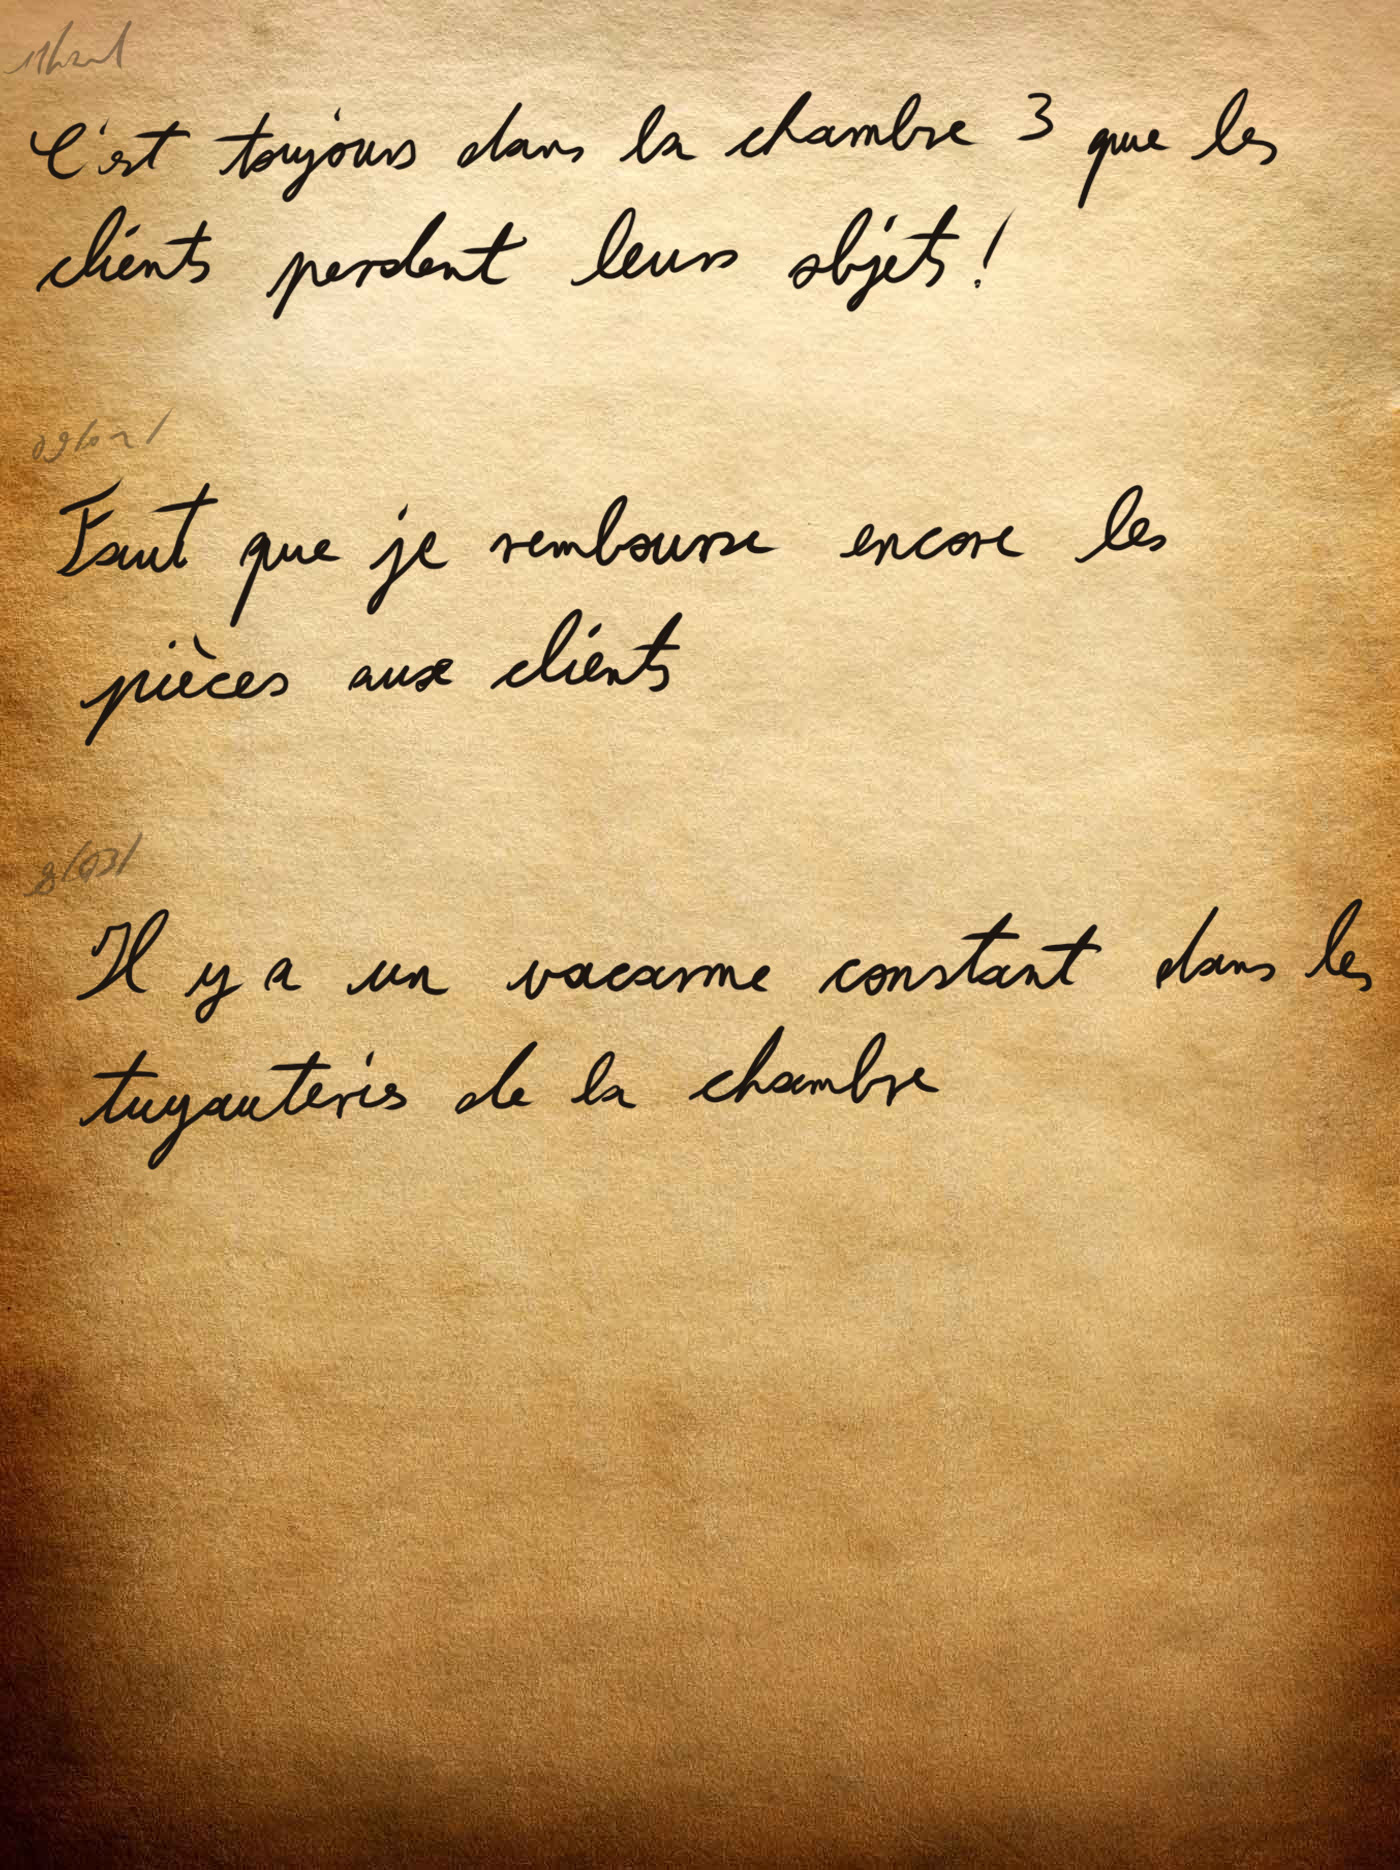 C'est toujours dans la chambre 3 que les
clients perdent leurs objets !
Faut que je rembourse encore les
pièces aux clients
Il y a un vacarme constant dans les
tuyauteris de la chambre